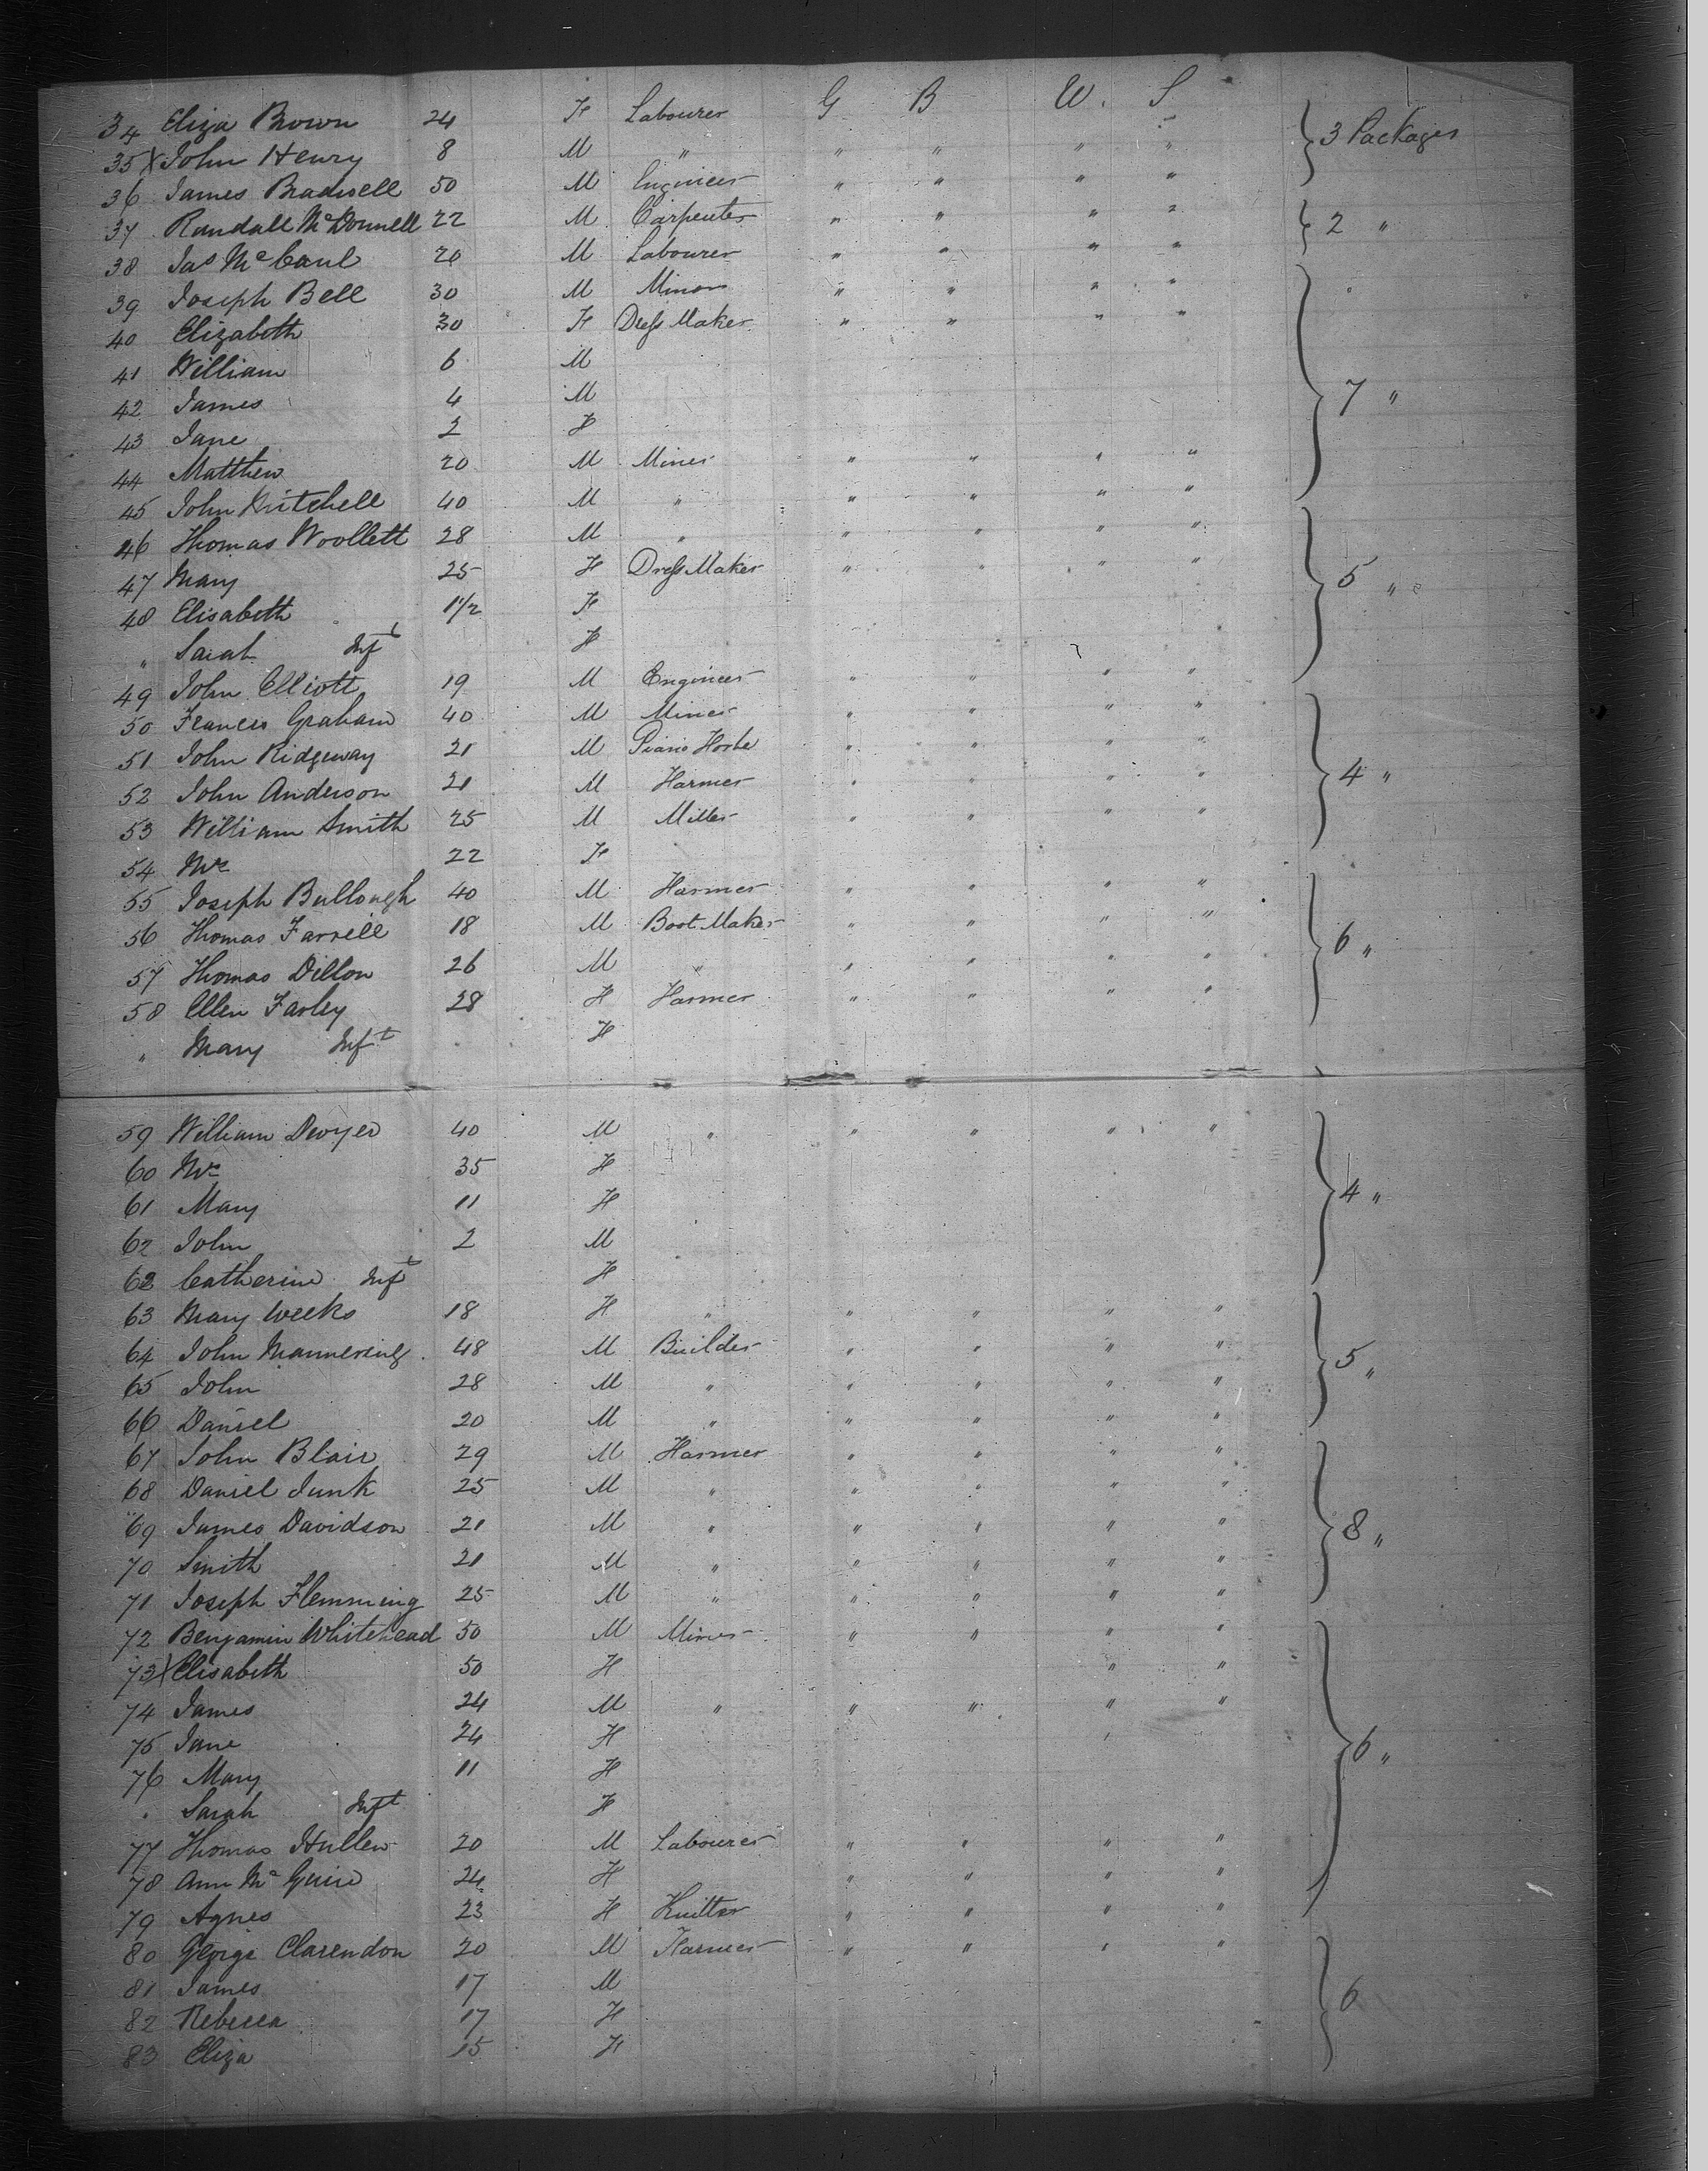 34 Eliza Brown 24 F Labourer G B U. S } 3 Packages
35 X John Henry 8 M " " " " "
36 James Bradwell 50 M Engineer " " " "
37 Randall McDonnell 22 M Carpenter " " " " } 2 "
38 Jas McCaul 26 M Labourer " " " "
39 Joseph Bell 30 M Minor " " " "
40 Elizabeth 30 F Dress Maker " " " "
41 William 6 M
42 James 4 M } 7 "
43 Jane 2 F
44 Matthew 20 M Miner " " " "
45 John Mitchell 40 M " " " " "
46 Thomas Woollett 28 M " " " " "
47 Mary 25 F Dress Maker " " " " } 5 "
48 Elisabeth 1 1/2 F
" Sarah Inft F
49 John Elliott 19 M Engineer " " " "
50 Frances Graham 40 M Miner " " " "
51 John Ridgeway 21 M Piano Forte " " " "
52 John Anderson 21 M Farmer " " " " } 4 "
53 William Smith 25 M Miller " " " "
54 Mrs 22 F
55 Joseph Bullough 40 M Farmer " " " "
56 Thomas Farrell 18 M Boot Maker " " " " } 6 "
57 Thomas Dillon 26 M " " " " "
58 Ellen Farley 28 F Farmer " " " "
" Mary Inft F
59 William Dwyer 40 M " " " " "
60 Mrs 35 F
61 Mary 11 F } 4 "
62 John 2 M
62 Catherine Inft F
63 Mary Weeks 18 F " " " " "
64 John Mannering 48 M Builder " " " " } 5 "
65 John 28 M " " " " "
66 Daniel 20 M " " " " "
67 John Blair 29 M Farmer " " " "
68 Daniel Junk 25 M " " " " "
69 James Davidson 21 M " " " " " } 8 "
70 Smith 21 M " " " " "
71 Joseph Flemming 25 M " " " " "
72 Benjamin Whitehead 50 M Miner " " " "
73 X Elisabeth 50 F " "
74 James 24 M " " " " "
75 Jane 24 F " } 6 "
76 Mary 11 F
" Sarah Inft F
77 Thomas 20 M Labourer " " " "
78 Ann McGuire 24 F " " " "
79 Agnes 23 F Knitter " " " "
80 George Clarendon 20 M Farmer " " " "
81 James 17 M } 6
82 Rebecca 17 F
83 Eliza 15 F